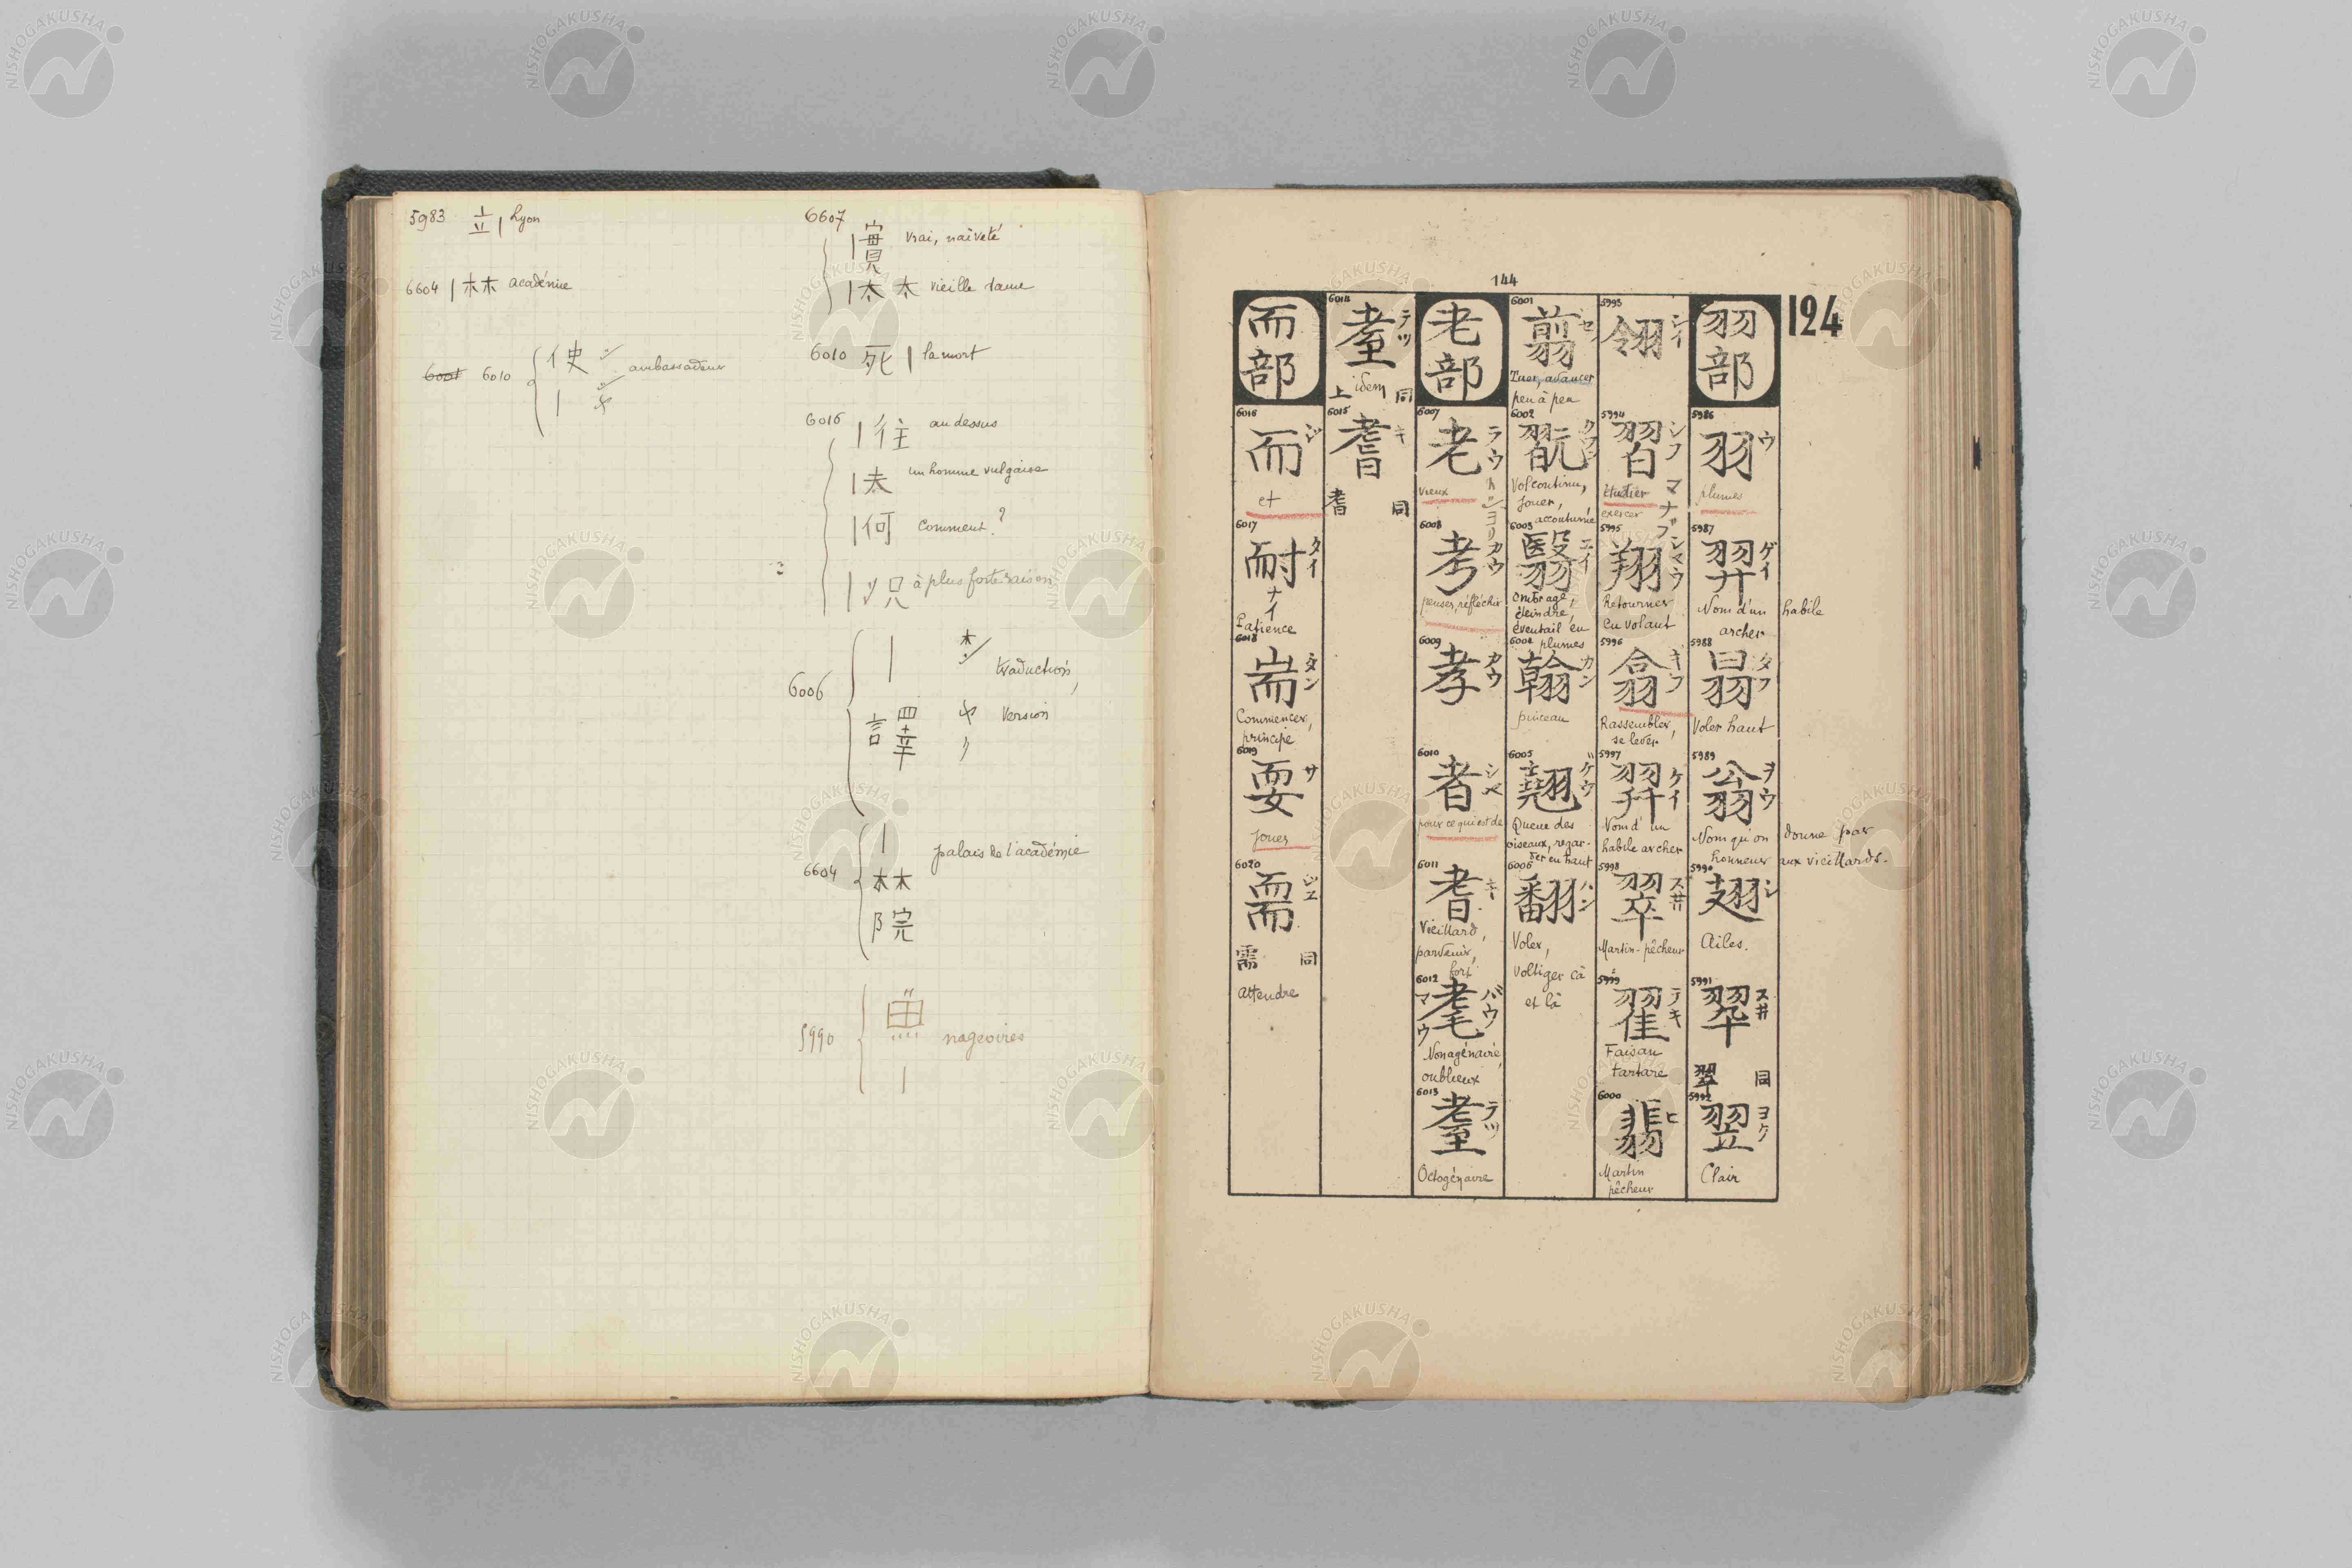 5983 立| Lyon
6604 |林 académie
6001 6010 使 シ ambassadeur
| シャ
6607
|實 vrai, naïveté
|太太 vieille dame
6010 死| la mort
6016 |往 au dessus
|夫 un homme vulgaire
|何 Comment?
|况 à plus forte raison
6006 | ホン traduction,
譯 ヤク version
6604 | palais de l'académie
林
院
5990 魚 nageoires
|
144
124
羽部
5986 羽 ウ
plumes
5987 羿 ゲイ
Nom d'un habile
archer
5988 㬛 タフ
Voler haut
5989 翁 ヲウ
Nom qu'on donne par
honneur aux vieillards.
5990 翅 シ
Ailes.
5991 翆 スヰ
翠 同
5992 翌 ヨク
Clair
5993 翎 レイ
5994 習 シフ マナブ
étudier
exercer
5995 翔 シヤウ
Retourner
en volant
5996 翕 キフ
Rassembler,
se lever
5997 羿 ケイ
Nom d'un
habile archer
5998 翠 スヰ
Martin-pêcheur
5999 翟 テキ
Faisan
tartare
6000 翡 ヒ
Martin
pêcheur
6001 翦 セン
Tuer, avancer
peu à peu
6002 翫 クワン
Vol continu,
jouer,
accoutumé
6003 翳 エイ
Ombrage,
éteindre,
éventail en
plumes
6004 翰 カン
pinceau
6005 翹 ゲウ
Queue des
oiseaux, regar-
der en haut
6006 翻 ハン
Voler,
voltiger çà
et là
老部
6007 老 ラウ
vieux
6008 考 カウ
penser, réfléchir
6009 孝 カウ
6010 者 シヤ
pour ce qui est de
6011 耆 キ
Vieillard,
parvenir,
fort
6012 耄 バウ マウ
Nonagénaire,
oublieux
6013 耋 テツ
Octogénaire
6014 耋 テツ
idem
上 同
6015 耆 キ
耆 同
而部
6016 而 ジ
et
6017 耐 タイ ナイ
Patience
6018 耑 タン
Commencer,
principe
6019 耍 サ
jouer
6020 耎 ジユ
需 同
attendre